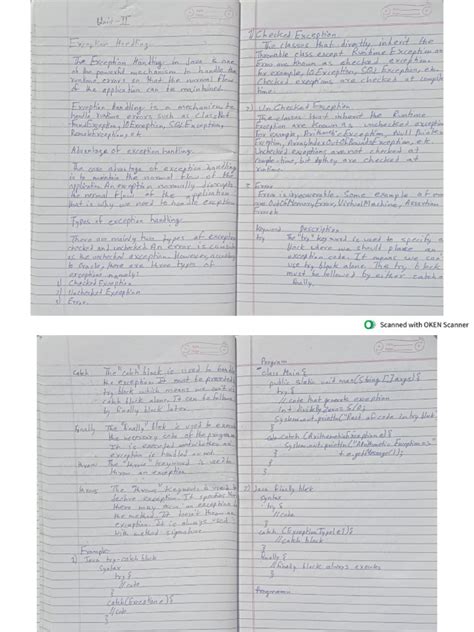 Unit-II
Exception Handling
The Exception Handling in Java is one
of the powerful mechanism to handle the
runtime errors so that the normal flow
of the application can be maintained.
Exception handling is a mechanism to
handle runtime errors such as ClassNot
FoundException, IOException, SQLException,
RemoteException, etc.
Advantage of exception handling.
The core advantage of exception handling
is to maintain the normal flow of the
application. An exception normally disrupts
the normal flow of the application
that is why we need to handle exception
Types of exception handling:
There are mainly two types of exception
checked and unchecked. An error is consider
as the unchecked exception. However, according
to Oracle, there are three types of
exception namely:
1) Checked Exception
2) Unchecked Exception
3) Error.
1) Checked Exception
The classes that directly inherit the
Throwable class except Runtime Exception and
Error are known as checked exception
for example, IOException, SQL Exception, etc.
Checked exceptions are checked at compile
time
2) Un Checked Exception.
The classes that inherit the Runtime
Exception are known as unchecked exception
for example, Arithmetic Exception, Null Pointer
Exception, ArrayIndexOutOfBoundsException, etc.
Unchecked exceptions are not checked at
compile-time, but they are checked at
runtime.
3 Error
Error is irrecoverable. Some example of error
are OutOfMemoryError, VirtualMachine, Assertion
Keyword Description
try The "try" keyword is used to specify a
block where we should place an
exception code. It means we can't
use try block alone. The try block
must be followed by either catch or
finally.
Scanned with OKEN Scanner
Catch The "catch" block is used to handle
the exception. It must be preceded by
try block which means we can't use
catch block alone. It can be followed
by finally block later.
finally The "finally" block is used to execute
the necessary code of the program.
It is executed whether an
exception is handled or not.
throw The "throw" keyword is used to
throw an exception
throws The "throws" keyword is used to
declare exception. It specifies that
there may occur an exception in
the method. It doesn't throw an
exception. It is always used
with method signature
Example:
1) Java try-catch block
Syntax
try {
//code
}
catch(Exception e) {
//code
}
Program
class Main {
public static void main(String [] args) {
try {
// code that generate exception
int divideByZero = 5/0;
System.out.println("Rest of code in try block");
}
catch (ArithmeticException e) {
System.out.println("Arithmetic Exception =>"
+ e.getMessage());
}
2) Java finally block
Syntax
try {
//code
}
catch (ExceptionType e1) {
//catch block
}
finally {
//finally block always executes
}
Program:-